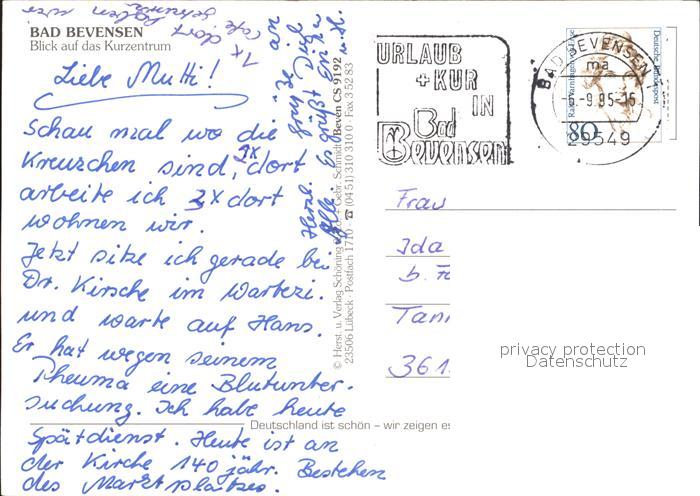 BAD BEVENSEN
Blick auf das Kurzentrum
1x dort haben wir
Cafe getrunken
Liebe Mutti!
Schau mal wo die
Kreuzchen sind, 1x dort
arbeite ich 2x dort
wohnen wir.
Jetzt sitze ich gerade bei
Dr. Kirsche im Wartezi.
und warte auf Hans.
Er hat wegen seinem
Rheuma eine Blutunter-
suchung. Ich habe heute
Spätdienst. Heute ist an
der Kirche 140 jähr. Bestehen
des Marktplatzes.
Herzl. Grüße an
Alle. Es grüßt Dich
Erika
u. H.
© Herst. u. Verlag Schöning & Co. + Gebr. Schmidt Beven CS 9192
23506 Lübeck · Postfach 1710 · ☎ (04 51) 310 310 · Fax 3 52 83
Deutschland ist schön – wir zeigen es
URLAUB
+ KUR
IN
Bad
Bevensen
BAD BEVENSEN
ma
-9.95-15
29549
80
Deutsche Bundespost
Frau
Ida
b.
361
privacy protection
Datenschutz